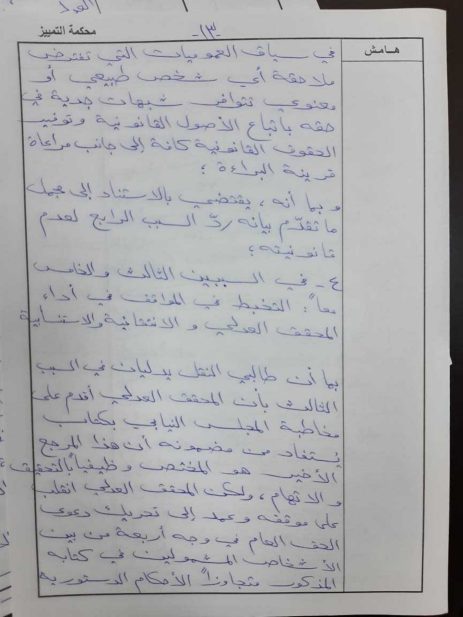 محكمة التمييز
-١٣-
هامش
في سياق العموميات التي تفترض
ملاحقة أي شخص طبيعي أو
معنوي تتوافر شبهات جدية في
حقه باتباع الأصول القانونية وتوفير
الحقوق القانونية كافة إلى جانب مراعاة
قرينة البراءة؛
و بما أنه، يقتضي بالاستناد إلى مجمل
ما تقدّم بيانه ردّ السبب الرابع لعدم
قانونيته؛
٤- في السببين الثالث والخامس
معاً: التخبط في المواقف في أداء
المحقق العدلي و الانتقائية والاستنسابية
بما أن طالبي النقل يدليان في السبب
الثالث بأن المحقق العدلي أقدم على
مخاطبة المجلس النيابي بكتاب
يستفاد من مضمونه أن هذا المرجع
الأخير هو المختص وظيفياً بالتحقيق
و الاتهام، ولكن المحقق العدلي انقلب
على موقفه وعمد إلى تحريك دعوى
الحق العام في وجه أربعة من بين
الأشخاص المشمولين في كتابه
المذكور متجاوزاً الأحكام الدستورية